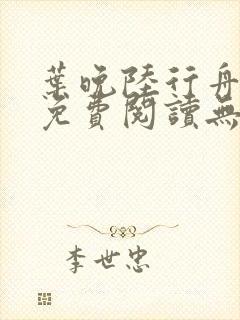 葉晚陸行舟
免費閱讀無
李世忠